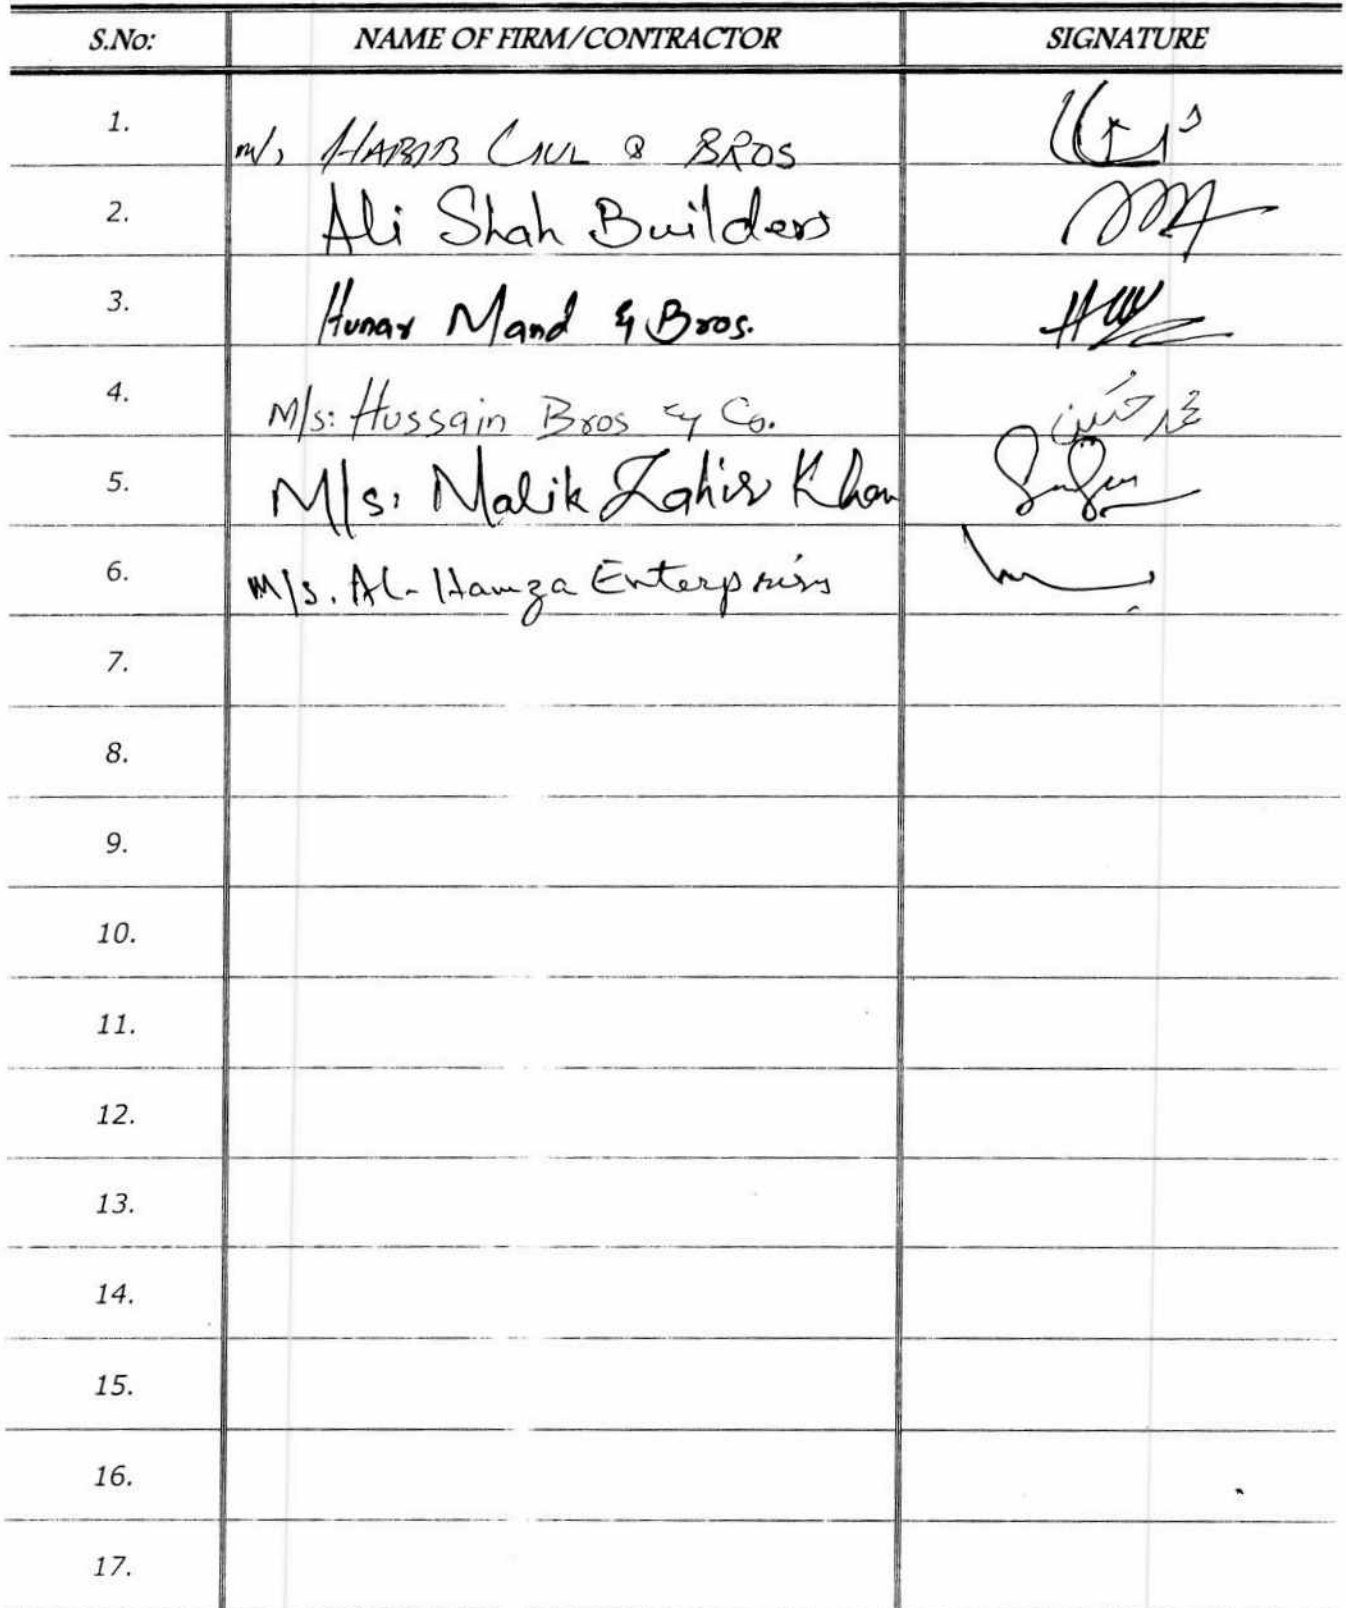 S.No: NAME OF FIRM/CONTRACTOR SIGNATURE
1. M/s HABIB GUL & BROS
2. Ali Shah Builders
3. Hunar Mand & Bros.
4. M/s: Hussain Bros & Co. محمد حسین
5. M/s: Malik Zahir Khan
6. M/s. Al-Hamza Enterprises
7.
8.
9.
10.
11.
12.
13.
14.
15.
16.
17.